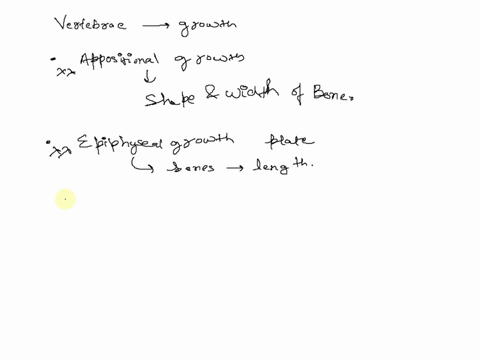 Vertebrae → growth
• xx Appositional growth
↓
Shape & width of Bone.
• xx Epiphyseal growth plate
↳ bones → length.